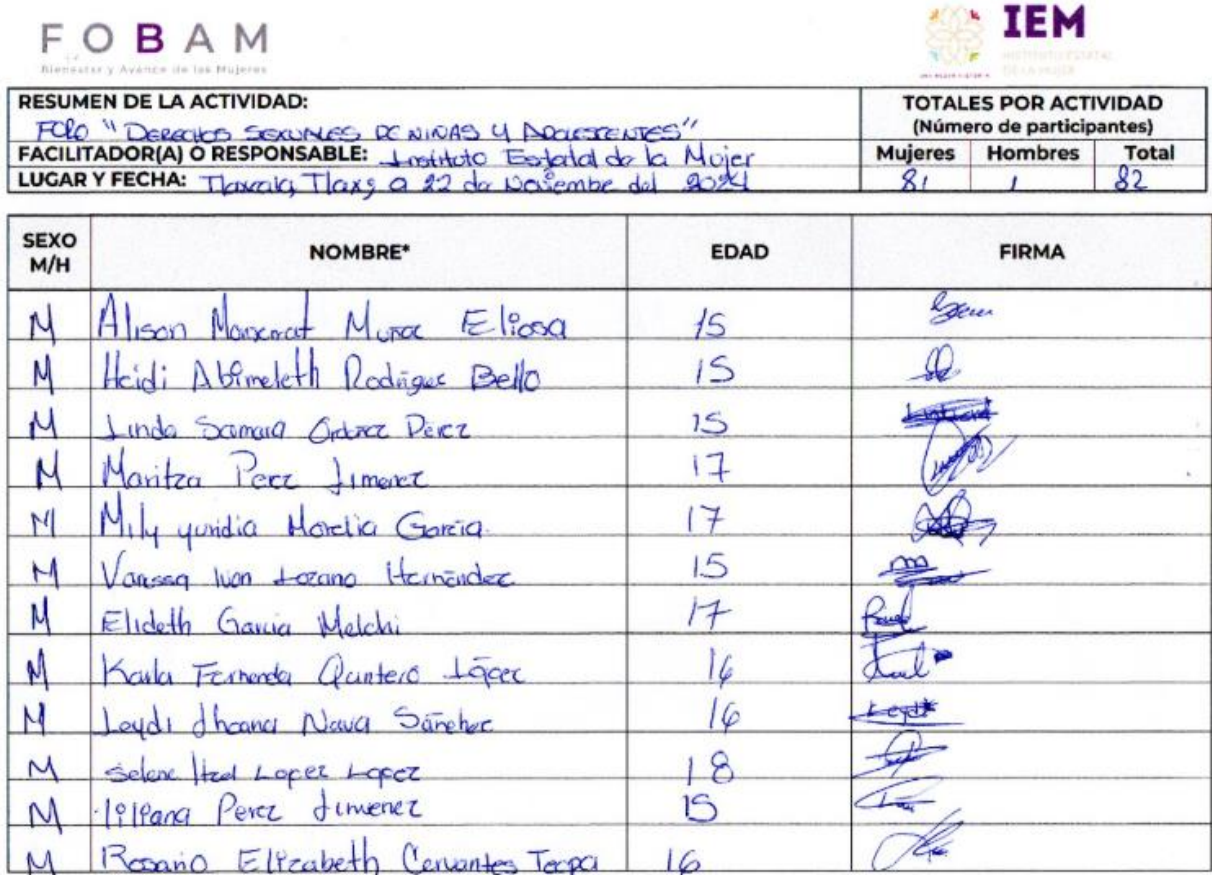 FOBAM
Bienestar y Avance de las Mujeres
IEM
INSTITUTO ESTATAL
DE LA MUJER
RESUMEN DE LA ACTIVIDAD:
FORO "DERECHOS SEXUALES DE NIÑAS Y ADOLESCENTES"
FACILITADOR(A) O RESPONSABLE: Instituto Estatal de la Mujer
LUGAR Y FECHA: Tlaxcala, Tlax; a 22 de Noviembe del 2024
TOTALES POR ACTIVIDAD
(Número de participantes)
Mujeres Hombres Total
81 1 82
SEXO M/H NOMBRE* EDAD FIRMA
M Alison Muñoz Eliosa 15
M Heidi Abimeleth Rodriguez Bello 15
M Linda Samara Ordoñez Pérez 15
M Maritza Perez Jimenez 17
M Mily yuridia Morelia Garcia 17
M Vanessa Lozano Hernández 15
M Elideth Garcia Melchi 17
M Karla Fernanda Quintero López 16
M Leydi Jhoana Nava Sánchez 16
M Selene Itzel Lopez Lopez 18
M liliana Perez Jimenez 15
M Rosario Elizabeth Cervantes Tecpa 16